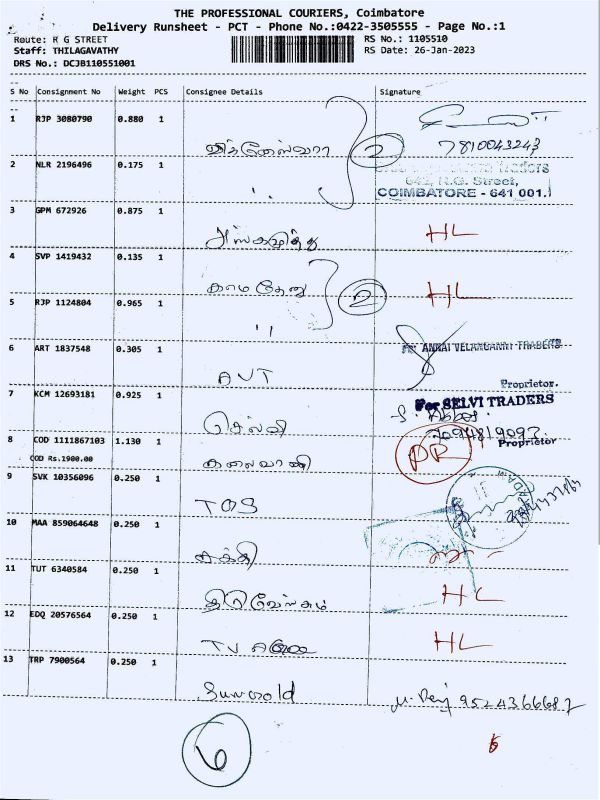 THE PROFESSIONAL COURIERS, Coimbatore
Delivery Runsheet - PCT - Phone No.:0422-3505555 - Page No.:1
Route: R G STREET
RS No.: 1105510
Staff: THILAGAVATHY
RS Date: 26-Jan-2023
DRS No.: DCJB110551001
S No Consignment No Weight PCS Consignee Details Signature
1 RJP 3080790 0.880 1
விக்னேஸ்வரா 2 7810043243
2 NLR 2196496 0.175 1
" Traders
R.G. Street,
COIMBATORE - 641 001.
3 GPM 672926 0.875 1
HL
4 SVP 1419432 0.135 1
காமதேனு 2 HL
5 RJP 1124804 0.965 1
"
6 ART 1837548 0.305 1
For ANNAI VELANGANNI TRADERS
AVT
Proprietor.
7 KCM 12693181 0.925 1
For SELVI TRADERS
செல்வி
Proprietor
8 COD 1111867103 1.130 1
COD Rs.1900.00
கலைவாணி
9 SVK 10356096 0.250 1
TOS
10 MAA 859064648 0.250 1
சக்தி
11 TUT 6340584 0.250 1
HL
12 EDQ 20576564 0.250 1
HL
13 TRP 7900564 0.250 1
9524366687
6